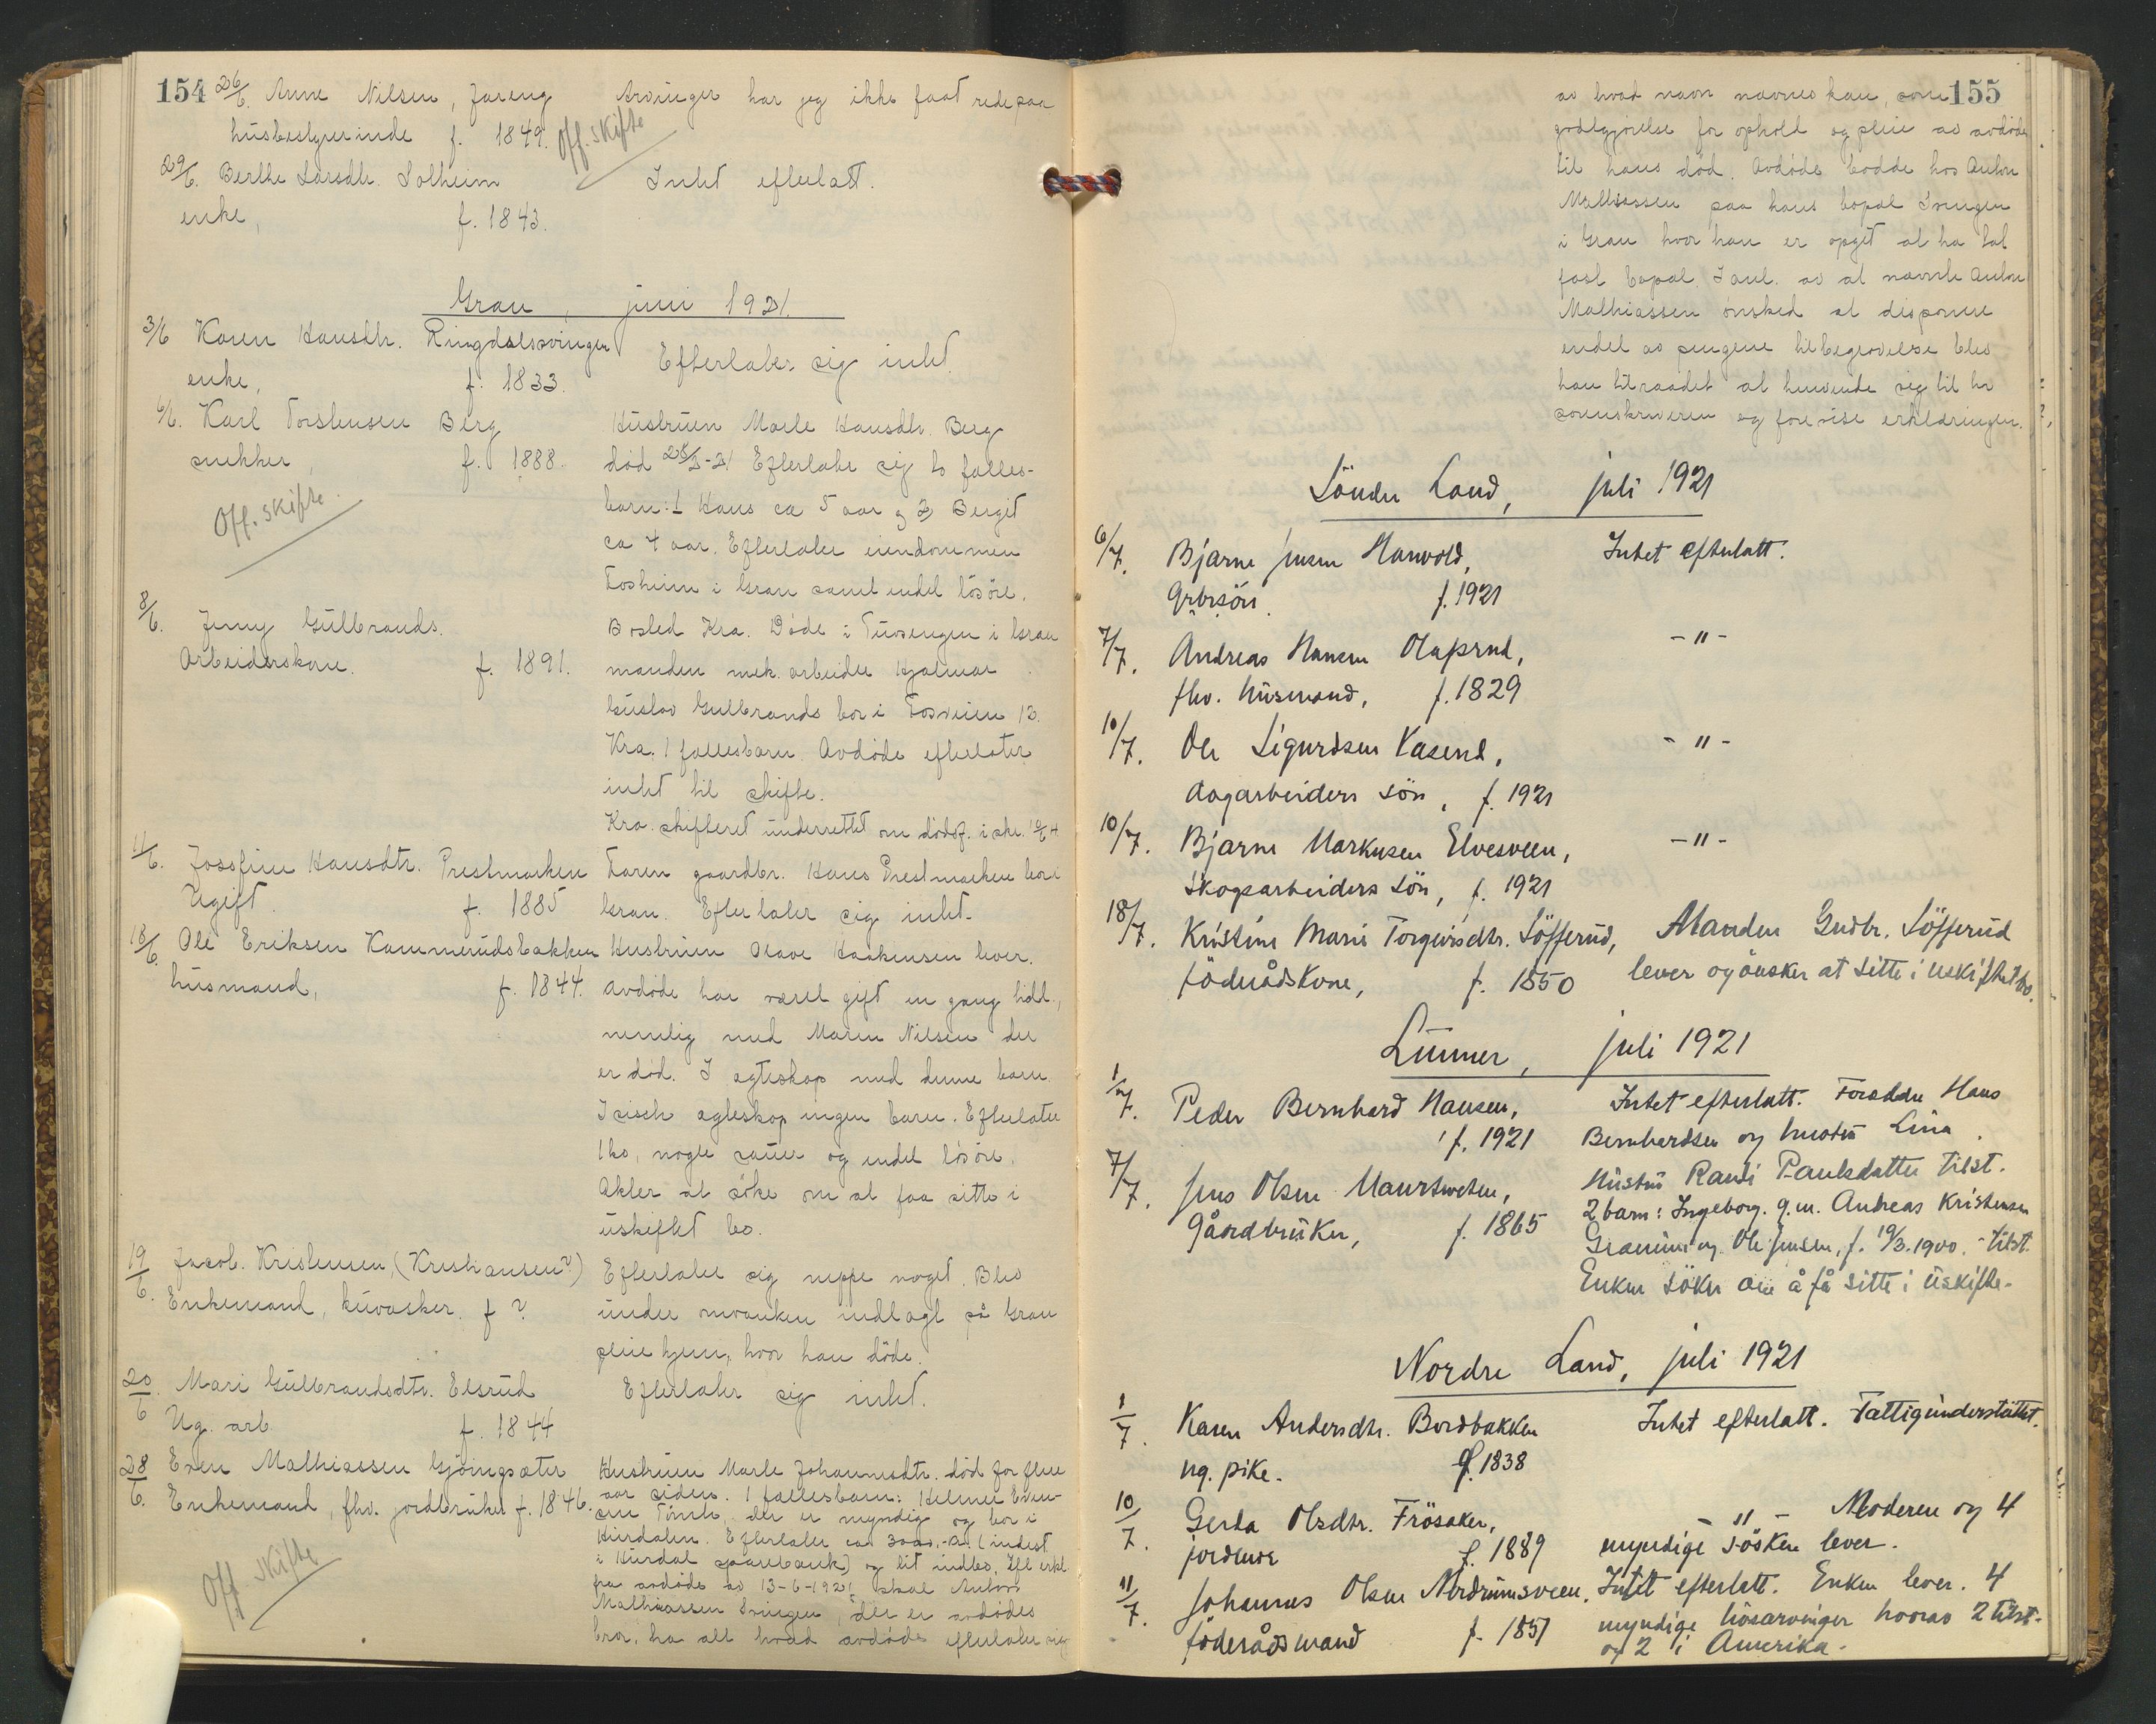 154
26/6. Anne Nilsen, Jareng Arvinger har jeg ikke faat rede paa
husbestyrerinde f. 1849. Off. skifte
29/6. Berthe Larsdtr. Solheim Intet efterlatt.
enke, f. 1843.
Gran, juni 1921.
3/6 Karen Hansdtr. Ringdalssvingen Efterlater sig intet.
enke, f. 1833.
6/6. Karl Torstensen Berg
snekker, f. 1888.
Off. skifte.
Hustruen Marte Hansdtr. Berg
død Efterlater sig to fælles-
barn: 1 Hans ca 5 aar og 2, Berget
ca 4 aar. Efterlater eiendommen
Fosheim i Gran samt endel løsøre.
8/6. Jenny Gulbrands.
Arbeiderskone. f. 1891.
Bosted Kra. Døde i i Gran
manden mek. arbeider Hjalmar
Gustav Gulbrands bor i Fosveien 13.
Kra. 1 fællesbarn. Avdøde efterlater
intet til skifte.
Kra. skifteret underrettet om dødsf. i skr.
11/6. Jossfine Hansdtr. Prestmarken
Ugift. f. 1885
Faren gaardbr. Hans Prestmarken bor i
Gran. Efterlater sig intet.
18/6. Ole Eriksen Kammerudsbakken
husmand, f. 1844.
Hustruen Olave Haakensen lever.
Avdøde har været gift en gang tidl.,
nemlig med Maren Nilsen der
er død. I egteskap med denne barn.
I sisste egteskap ingen barn. Efterlater
1 ko, nogle sauer og endel løsøre.
Akter at søke om at faa sitte i
uskiftet bo.
19/6. Jacob Kristensen, (Kristiansen?)
Enkemand, kurvasker. f ?
Efterlater sig neppe noget. Blev
under indlagt på Gran
pleiehjem, hvor han døde.
20/6. Mari Gulbrandsdtr. Elsrud Efterlater sig intet.
Ug. arb. f. 1844
28/6. Even Mathiassen Gjöingsæter
Enkemand, fhv. jordbruker f. 1846.
Off skifte
Hustruen Marte Johannesdtr. død for flere
aar siden. 1 fællesbarn: Helmer Even-
sen Tömte, der er myndig og bor i
Hurdalen. Efterlater ca 3000,- kr (indest.
i Hurdal sparebank) og litt indbo. Ifl erkl.
fra avdøde av 13-6-1921 skal Anton
Mathiassen Svingen, der er avdødes
bror, ha alt hvad avdøde efterlater sig
155
av hvad navn nævnes kan, som
godtgjørelse for ophold og pleie av avdøde
til hans død. Avdøde bodde hos Anton
Mathiassen paa hans bopæl Svingen
i Gran hvor han er opgit at ha hat
fast bopæl. I anl. av at nævnte Anton
Mathiassen ønsked at disponere
endel av pengene til begravelse blev
han tilraadet at henvende sig til hr
sorenskriveren og forevise erklæringen.
Söndre Land, juli 1921
6/7. Bjarne Jensen Hanvold, Intet efterlatt.
Grbrsön. f. 1921
7/7. Andreas Hansen Olaprud, - " -
fhv. husmand, f. 1829
10/7. Ole Sigurdsen Kaserud, - " -
dagarbeiders sön, f. 1921
10/7. Bjarne Markusen Elvesveen, - " -
Skogsarbeiders sön, f. 1921
18/7. Kristine Marie Torgeirsdtr. Söfferud, Manden Gudbr. Söfferud
föderådskone, f. 1850 lever og önsker at sitte i uskiftet bo.
Lunner, juli 1921
1/7. Peder Bernhard Hansen, Intet efterlatt. Forældre Hans
f. 1921 Bernhardsen og hustru Lina.
7/7. Jens Olsen
Gårdbruker, f. 1865
Hustru Randi Paulsdatter tilst.
2 barn: Ingeborg. g.m. Andreas Kristensen
og Ole Jensen, f. 19/3.1900. - tilst.
Enken söker om å få sitte i uskifte.
Nordre Land, juli 1921
1/7. Karen Andersdtr. Bordbakken Intet efterlatt. Fattigunderstöttet.
ug. pike. f. 1838
10/7. Gerda Olsdtr. Frösaker, - " - Moderen og 4
f. 1889 myndige sösken lever.
11/7. Johannes Olsen Nordrumsveen. Intet efterlatt. Enken lever. 4
föderådsmand f. 1851 myndige livsarvinger hvorav 2 tilst.
og 2 i Amerika.